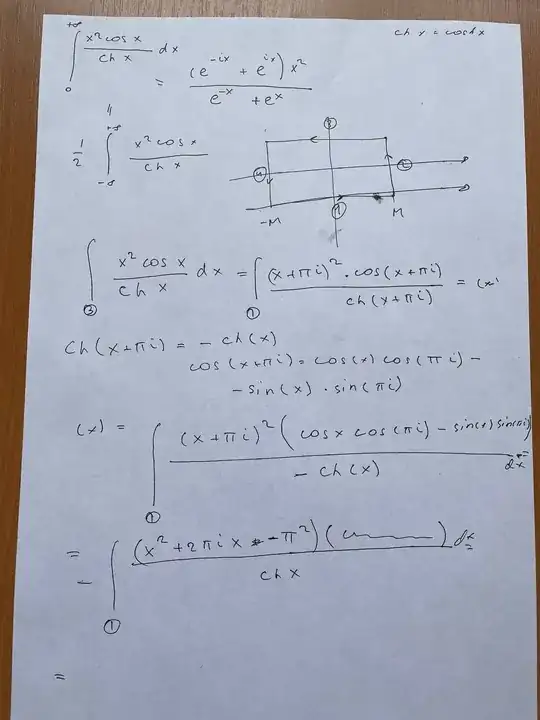 +∞
∫ x² cos x / ch x dx = (e^{-ix} + e^{ix}) x² / e^{-x} + e^x
0
ch x = cosh x
||
+∞
1/2 ∫ x² cos x / ch x
-∞
③
④ ②
-M ① M
∫③ x² cos x / ch x dx = ∫① (x+πi)² · cos(x+πi) / ch(x+πi) = (x)
Ch(x+πi) = - ch(x)
cos(x+πi) = cos(x) cos(πi) -
- sin(x) · sin(πi)
(x) = ∫① (x+πi)² (cos x cos(πi) - sin(x) sin(πi)) / - ch(x) dx =
= - ∫① (x² + 2πi x - π²)( ) / ch x dx =
=